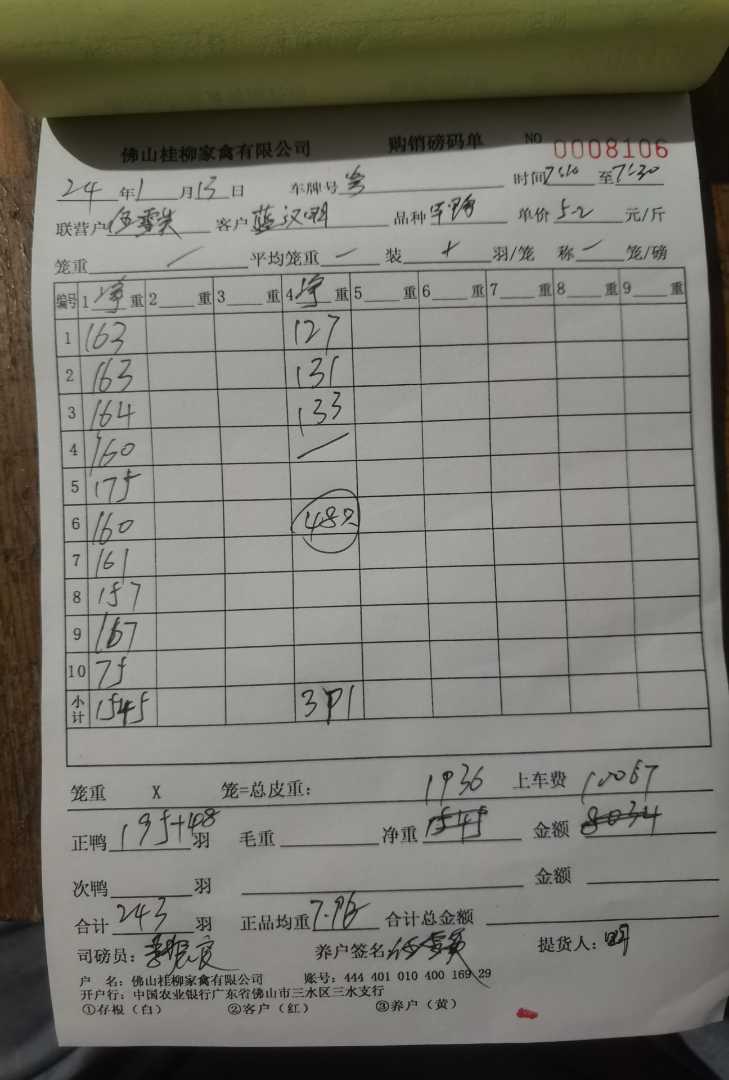 佛山桂柳家禽有限公司 购销磅码单 NO 0008106
24 年 1 月 13 日 车牌号 时间 7:10 至 7:30
联营户 客户 蓝汉明 品种 单价 5.2 元/斤
笼重 / 平均笼重 一 装 十 羽/笼 称 一 笼/磅
编号 1 净 重 2 重 3 重 4 净 重 5 重 6 重 7 重 8 重 9 重
1 163 127
2 163 131
3 164 133
4 160 /
5 175
6 160 48只
7 161
8 157
9 167
10 75
小计 1545 391
笼重 X 笼=总皮重: 1936 上车费 10067
正鸭 195+48 羽 毛重 净重 1545 金额 8034
次鸭 羽 金额
合计 243 羽 正品均重 7.96 合计总金额
司磅员: 养户签名 提货人: 明
户 名: 佛山桂柳家禽有限公司 账号: 444 401 010 400 169 29
开户行: 中国农业银行广东省佛山市三水区三水支行
①存根（白） ②客户（红） ③养户（黄）